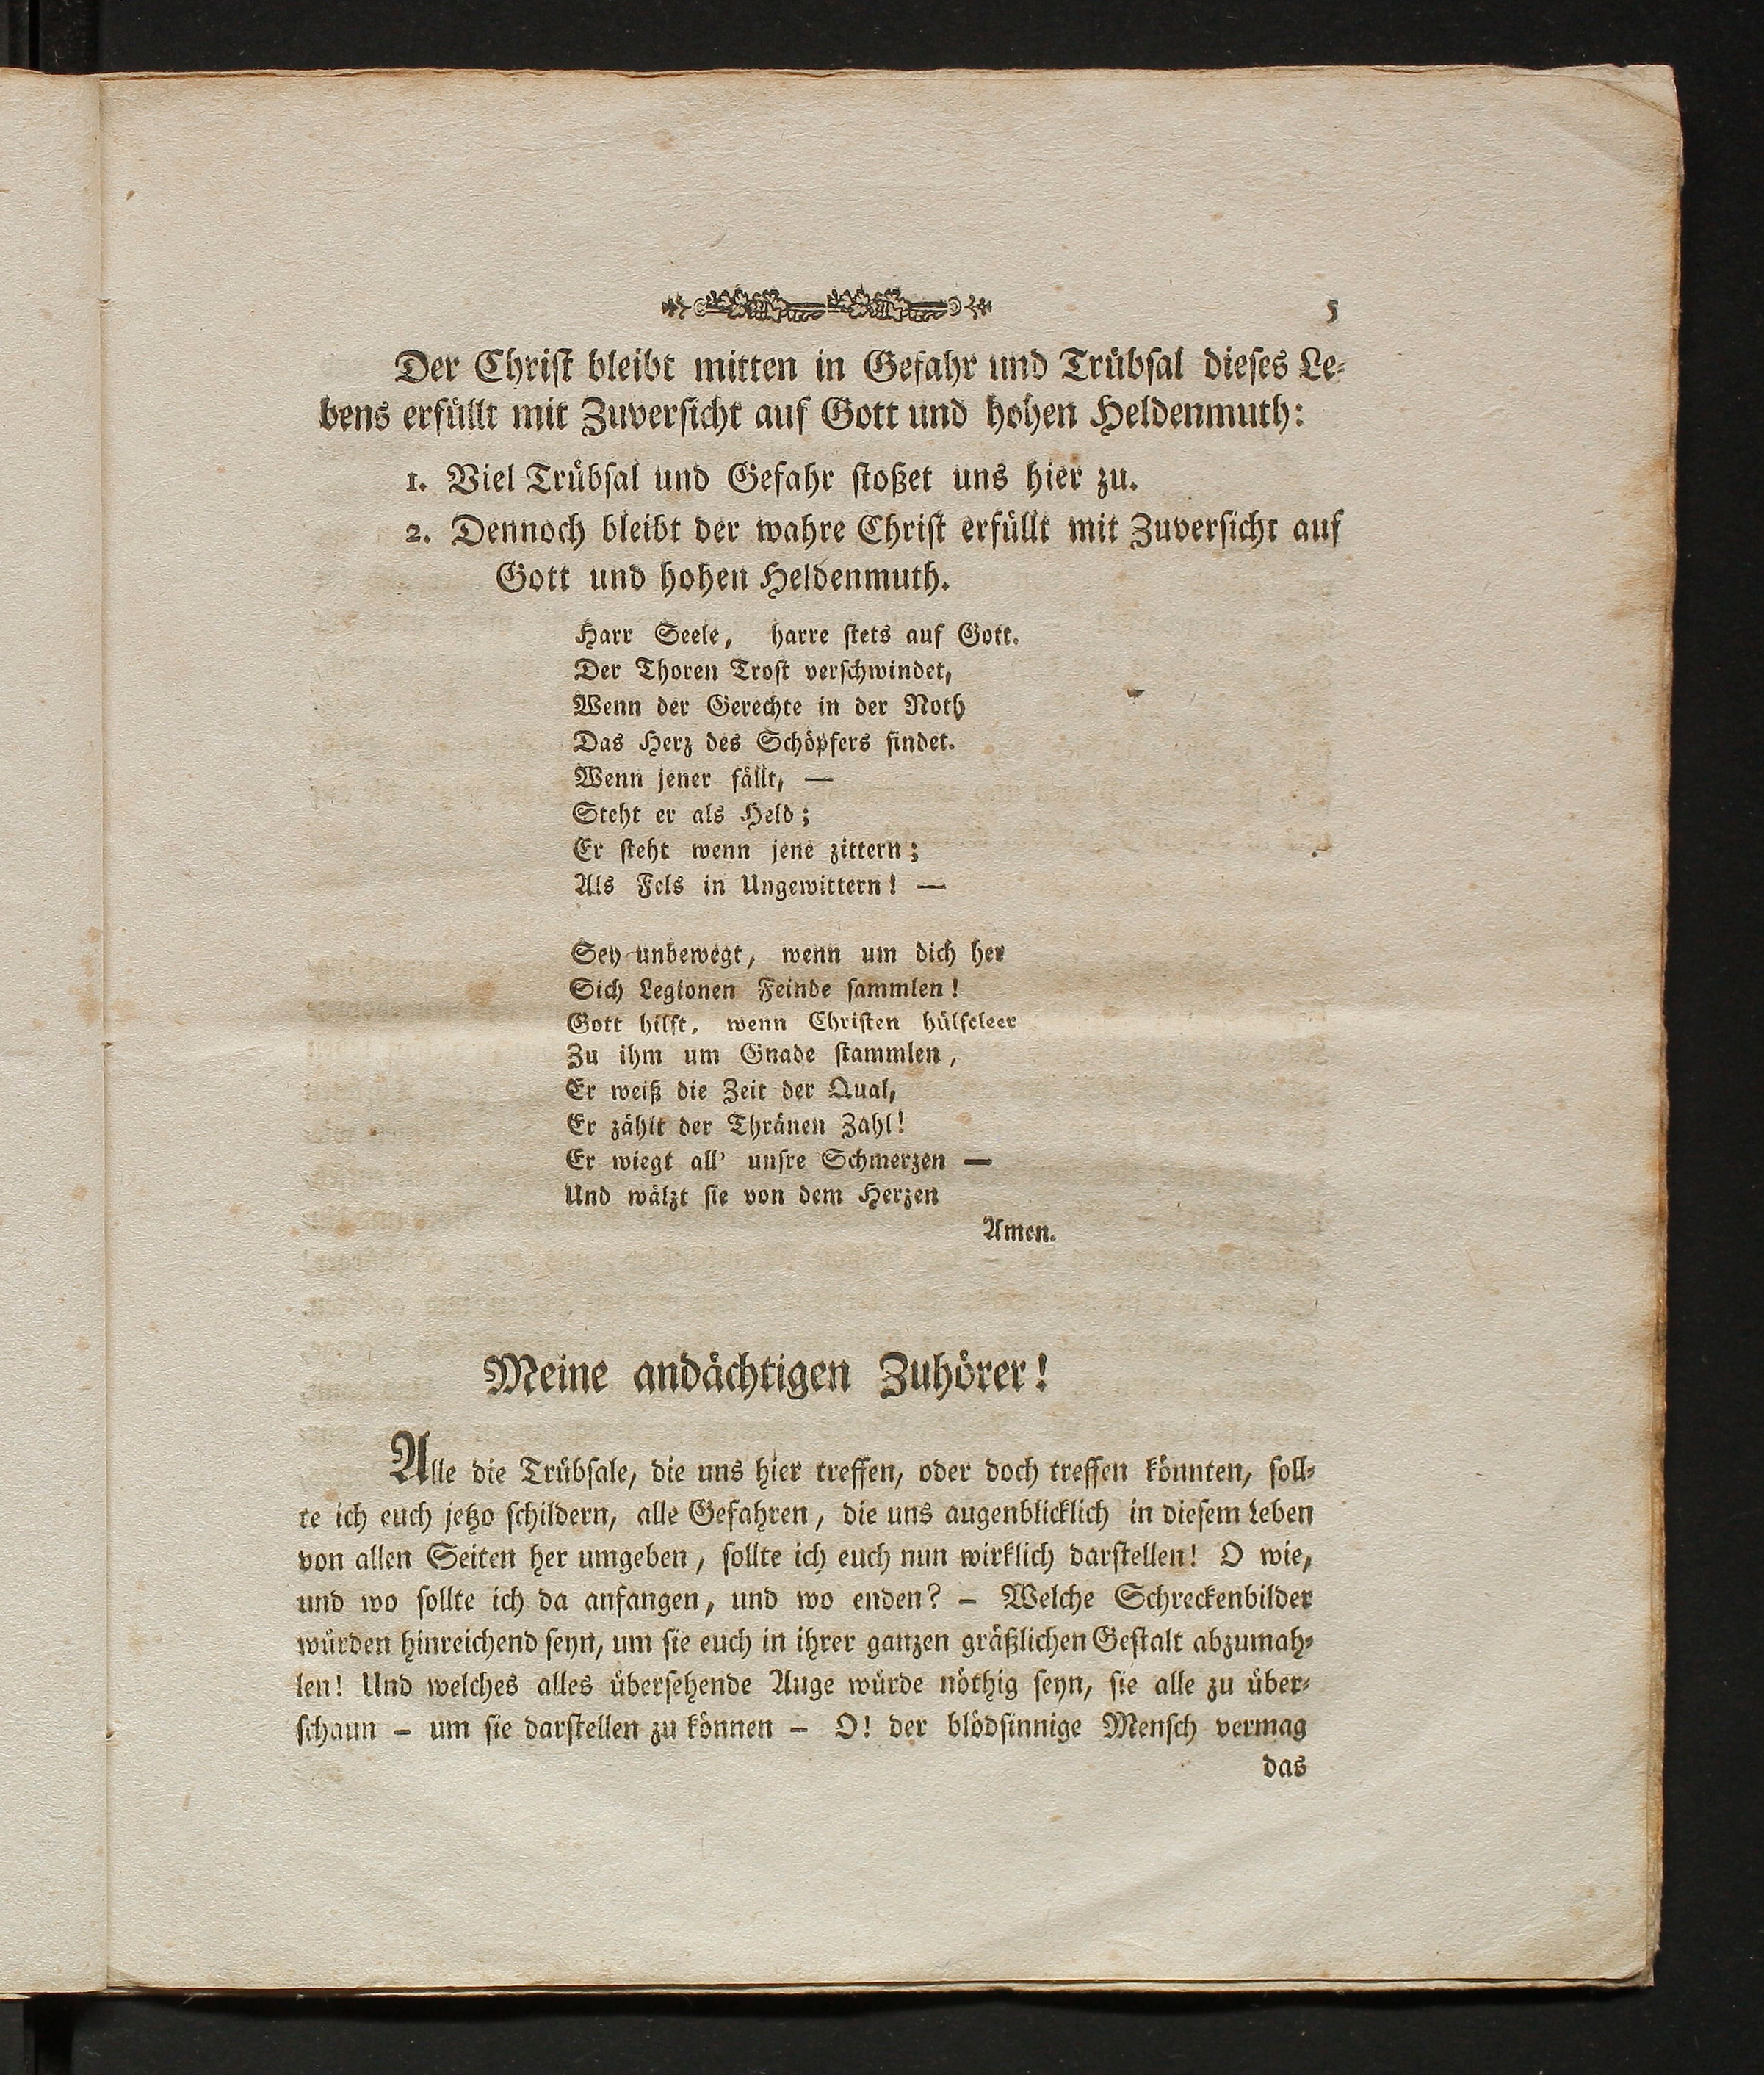 5
Der Chriſt bleibt mitten in Gefahr und Trübſal dieſes Le⸗
bens erfüllt mit Zuverſicht auf Gott und hohen Heldenmuth:
1. Viel Trübſal und Gefahr ſtoßet uns hier zu.
2. Dennoch bleibt der wahre Chriſt erfüllt mit Zuverſicht auf
Gott und hohen Heldenmuth.
Harr Seele, harre ſtets auf Gott.
Der Thoren Troſt verſchwindet,
Wenn der Gerechte in der Noth
Das Herz des Schöpfers findet.
Wenn jener fällt, —
Steht er als Held;
Er ſteht wenn jene zittern;
Als Fels in Ungewittern! —
Sey unbewegt, wenn um dich her
Sich Legionen Feinde ſammlen!
Gott hilft, wenn Chriſten hülfeleer
Zu ihm um Gnade ſtammlen,
Er weiß die Zeit der Qual,
Er zählt der Thränen Zahl!
Er wiegt all' unſre Schmerzen —
Und wälzt ſie von dem Herzen
Amen.
Meine andächtigen Zuhörer!
Alle die Trübſale, die uns hier treffen, oder doch treffen könnten, ſoll⸗
te ich euch jetzo ſchildern, alle Gefahren, die uns augenblicklich in dieſem Leben
von allen Seiten her umgeben, ſollte ich euch nun wirklich darſtellen! O wie,
und wo ſollte ich da anfangen, und wo enden? – Welche Schreckenbilder
würden hinreichend ſeyn, um ſie euch in ihrer ganzen gräßlichen Geſtalt abzumah⸗
len! Und welches alles überſehende Auge würde nöthig ſeyn, ſie alle zu über⸗
ſchaun – um ſie darſtellen zu können – O! der blödſinnige Menſch vermag
das